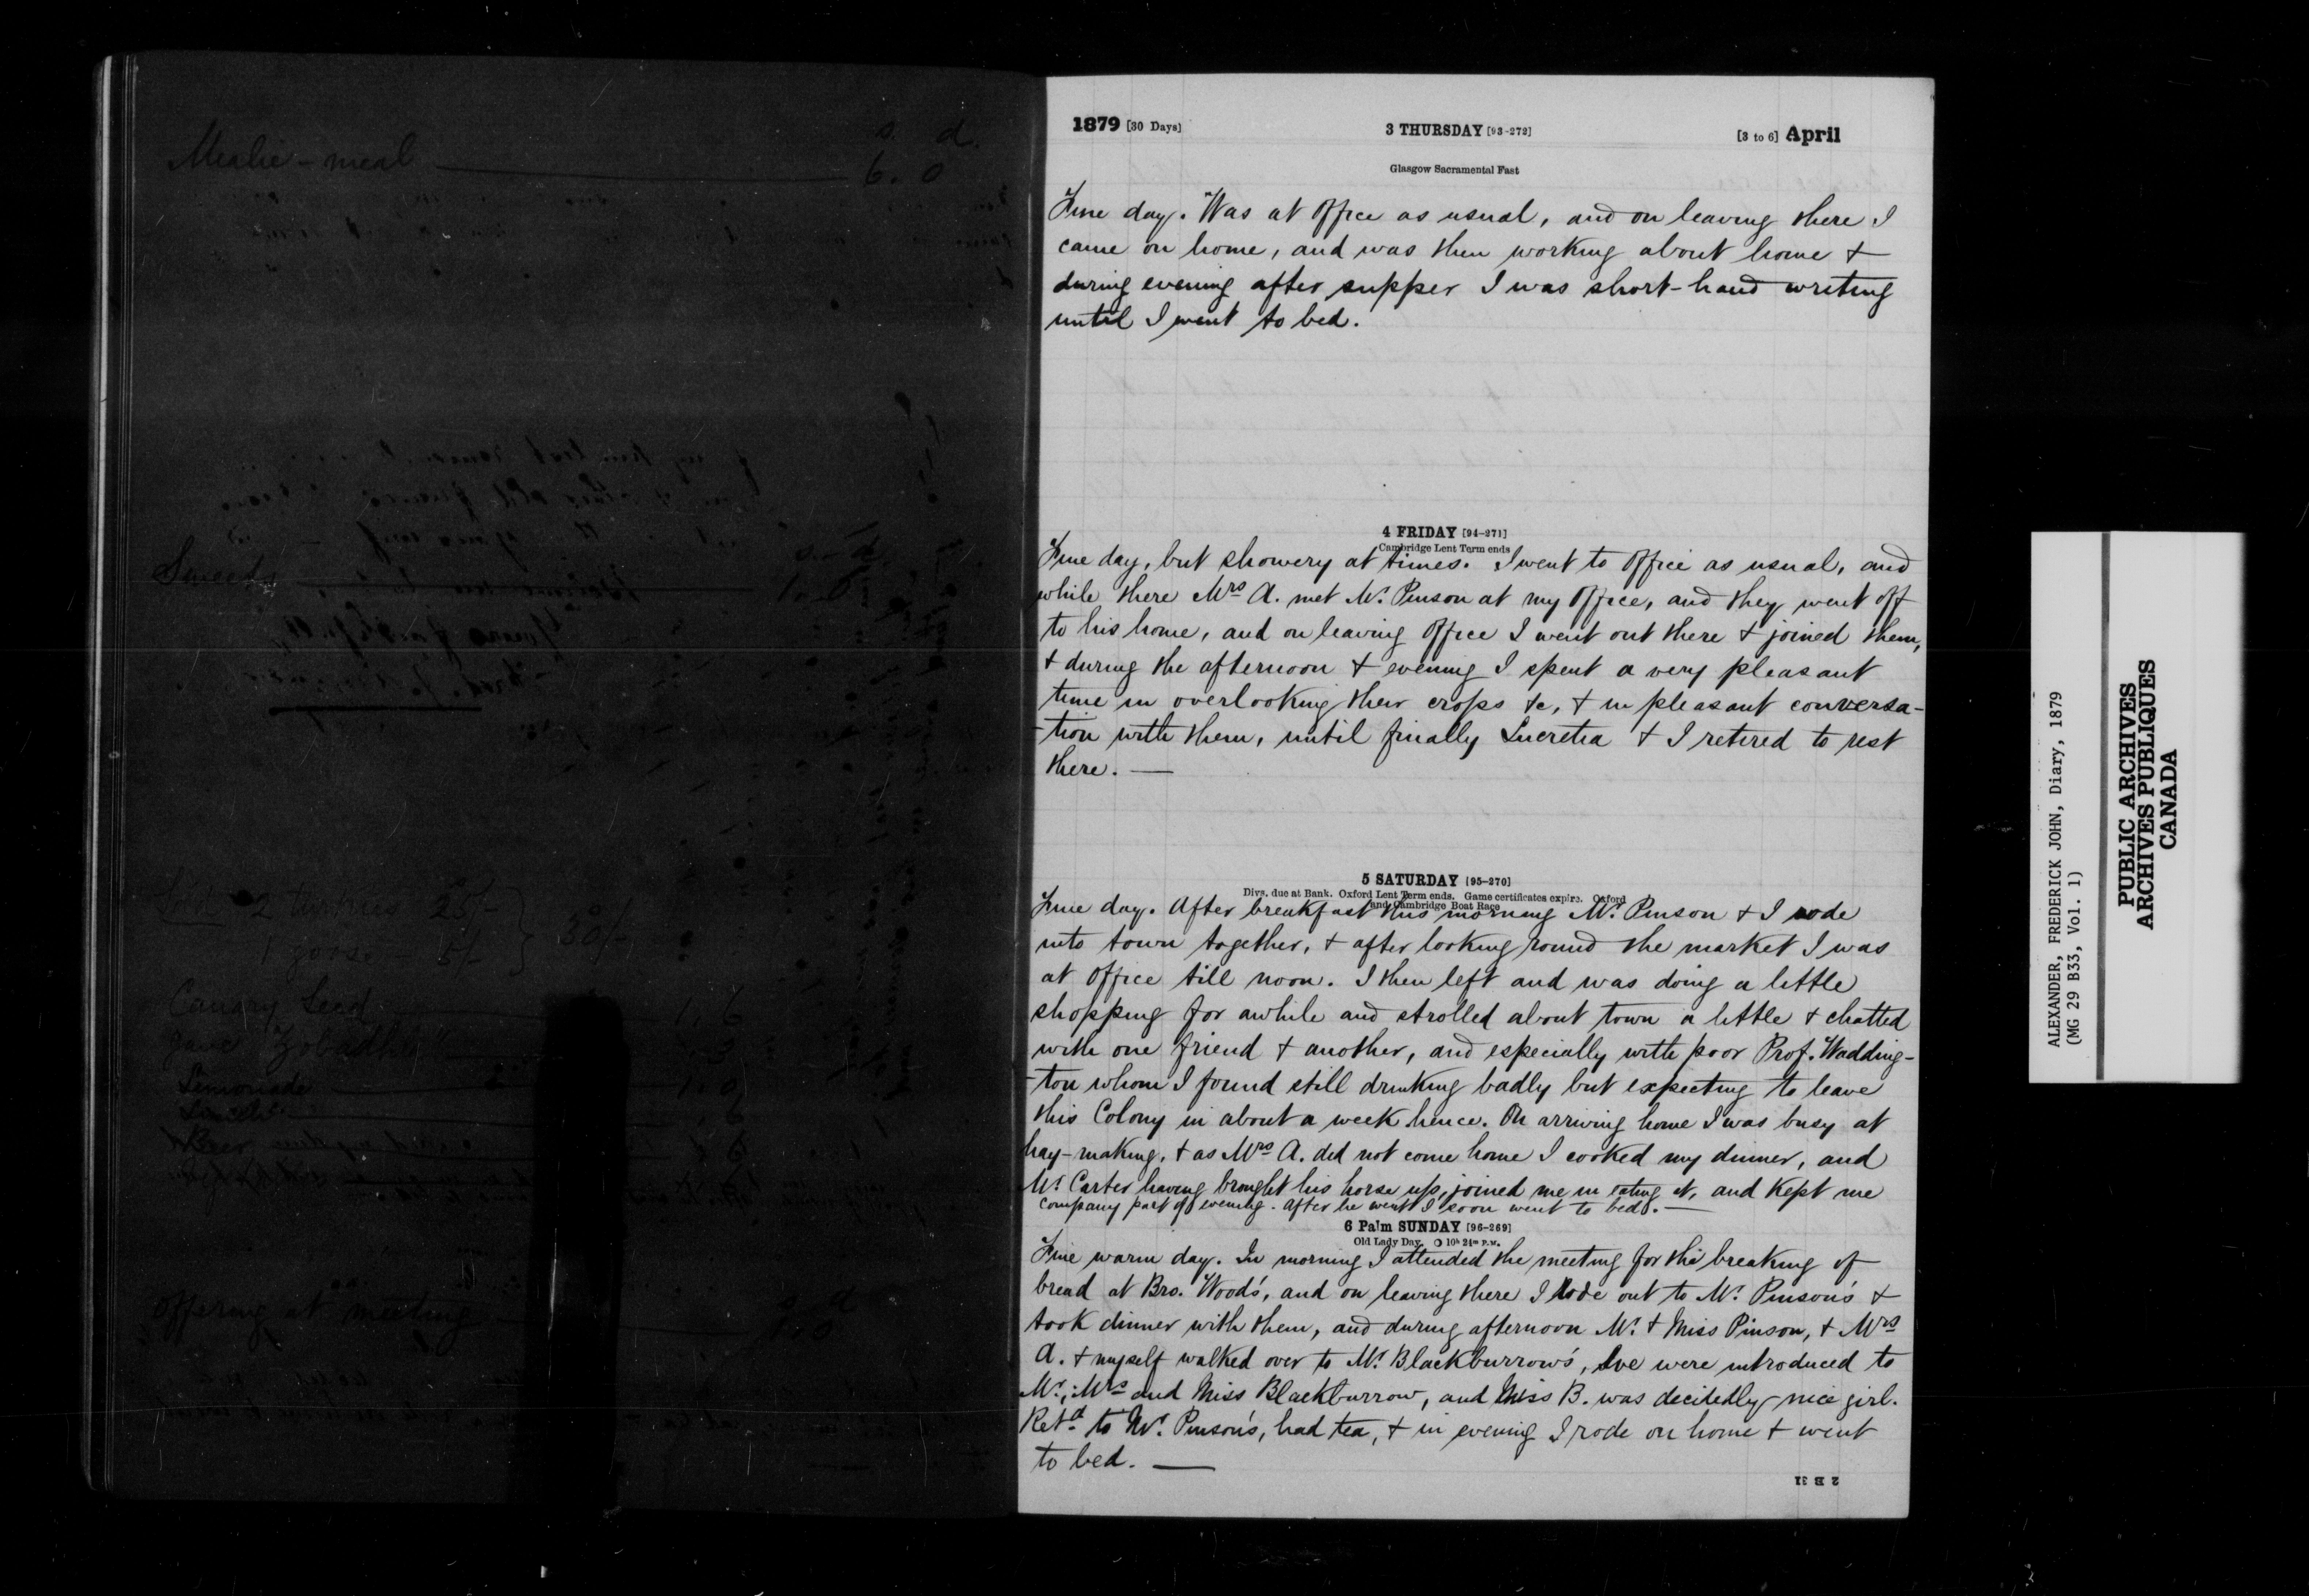 s. d.
Mealie-meal 6. 0
s. d.
Sweets 1. 0
2 turkies 25/- } 30/-
1 goose 5/-
Canary Seed 1 6
Lemonade 1. 0
Beer 6
Offering at meeting
s d
1879 [30 Days] 3 THURSDAY [93-272] [3 to 6] April
Glasgow Sacramental Fast
Fine day. Was at Office as usual, and on leaving there I
came on home, and was then working about home +
during evening after supper I was short-hand writing
until I went to bed.
4 FRIDAY [94-271]
Cambridge Lent Term ends
Fine day, but showery at times. I went to Office as usual, and
while there Mrs A. met Mr. Pinson at my Office, and they went off
to his home, and on leaving Office I went out there + joined them,
+ during the afternoon + evening I spent a very pleasant
time in overlooking their crops &c, + in pleasant conversa-
-tion with them, until finally Lucretia + I retired to rest
there. —
5 SATURDAY [95-270]
Divs. due at Bank. Oxford Lent Term ends. Game certificates expire. Oxford
and Cambridge Boat Race
Fine day. After breakfast this morning Mr. Pinson + I rode
into town together, + after looking round the market I was
at Office till noon. I then left and was doing a little
shopping for awhile and strolled about town a little + chatted
with one friend + another, and especially with poor Prof. Wadding-
-ton whom I found still drinking badly but expecting to leave
this Colony in about a week hence. On arriving home I was busy at
hay-making, + as Mrs A. did not come home I cooked my dinner, and
Mr. Carter having brought his horse up, joined me in eating it, and kept me
company part of evening. After he went I soon went to bed. —
6 Palm SUNDAY [96-269]
Old Lady Day. ○ 10h 24m P.M.
Fine warm day. In morning I attended the meeting for the breaking of
bread at Bro. Wood's, and on leaving there I rode out to Mr. Pinson's +
took dinner with them, and during afternoon Mr. + Miss Pinson, + Mrs
A. + myself walked over to Mr. Blackburrow's, & we were introduced to
Mr., Mrs and Miss Blackburrow, and Miss B. was decidedly nice girl.
Retd to Mr. Pinson's, had tea, + in evening I rode on home + went
to bed. —
2 B 31
ALEXANDER, FREDERICK JOHN, Diary, 1879
(MG 29 B33, Vol. 1)
PUBLIC ARCHIVES
ARCHIVES PUBLIQUES
CANADA